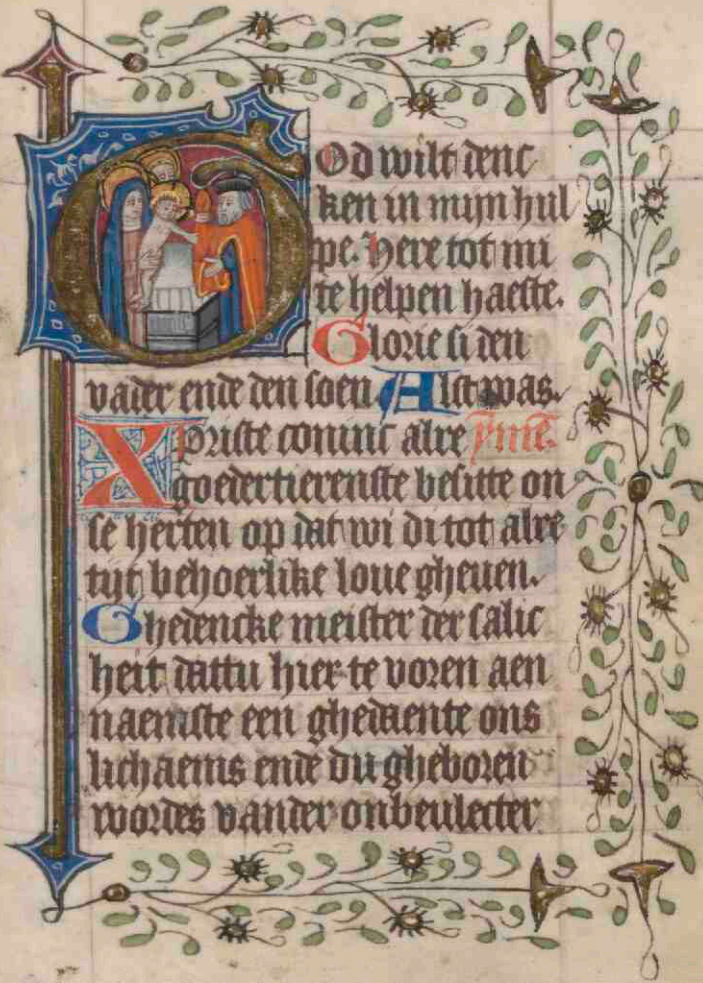 GOd wilt denc
ken in mijn hul
pe. Here tot mi
te helpen haeste.
Glorie si den
vader ende den soen. Alst was.
XPriste coninc alre ẏme.
goedertierenste besitte on
se herten op dat wi di tot alre
tijt behoerlike loue gheuen.
Ghedencke meister der salic
heit dattu hier te voren aen
naemste een ghedaente ons
lichaems ende du gheboren
wordes vander onbeulecter